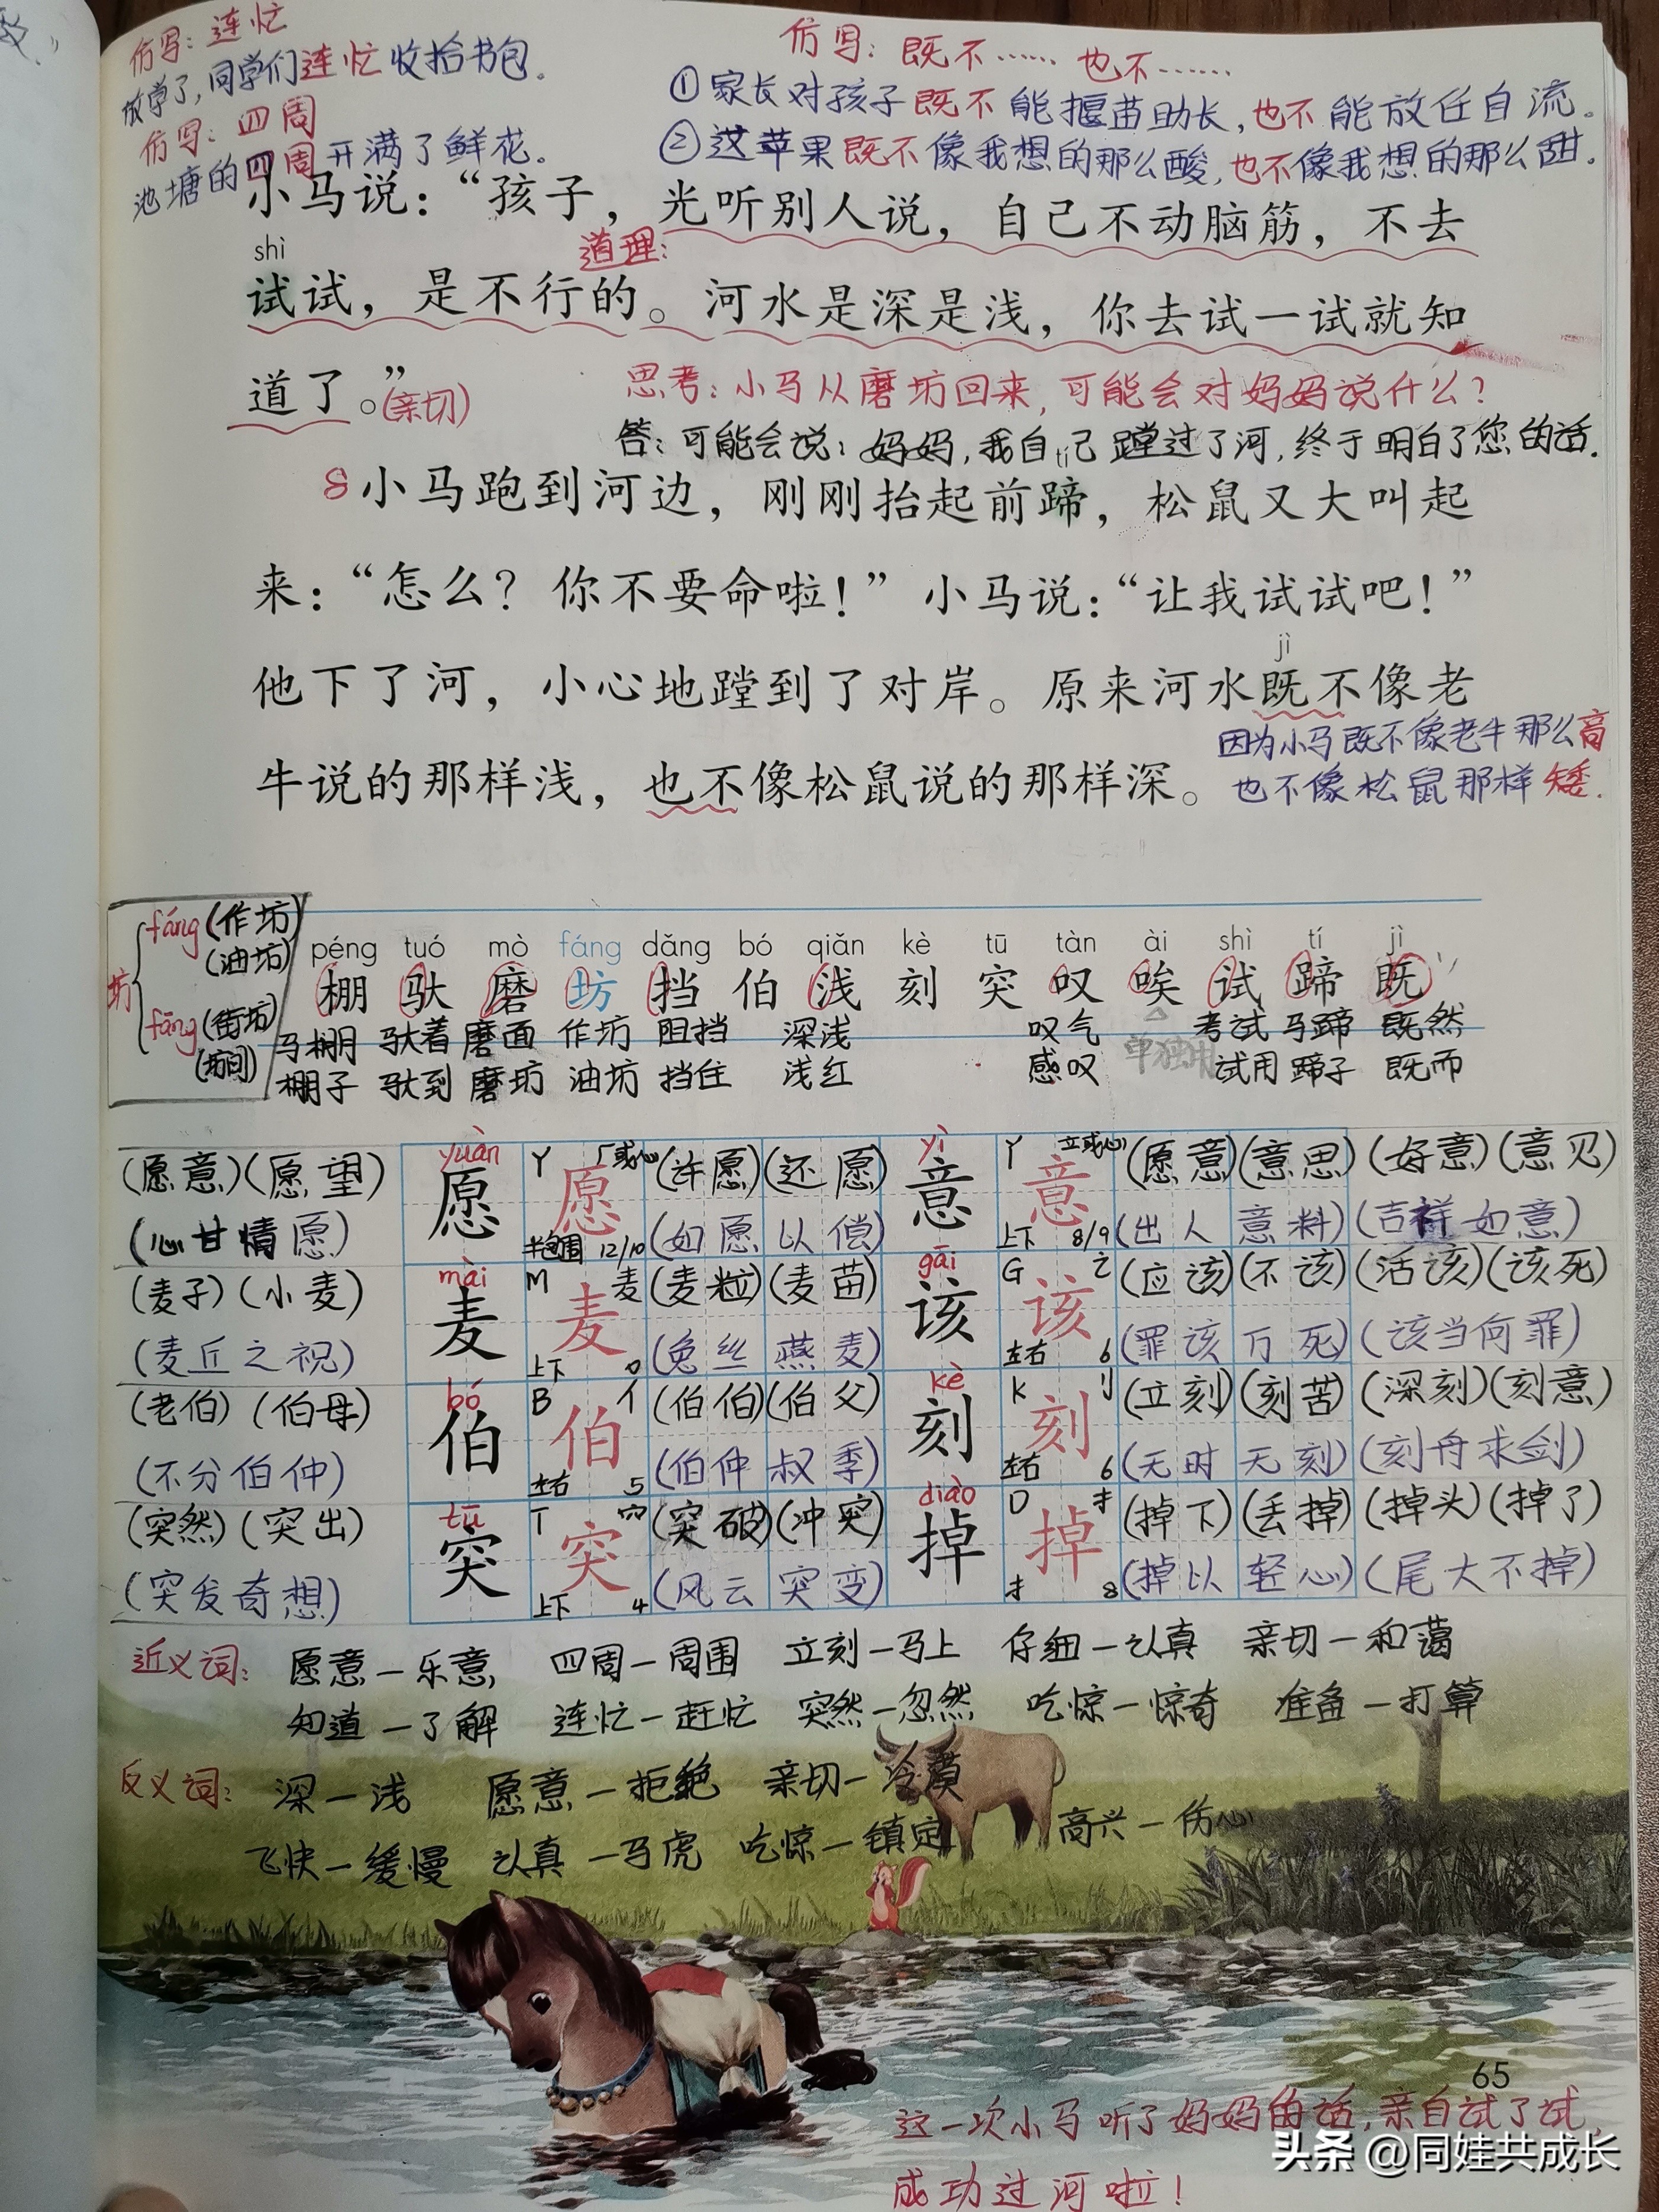 仿写：连忙
放学了，同学们连忙收拾书包。
仿写：四周
池塘的四周开满了鲜花。
仿写：既不……也不……
①家长对孩子既不能揠苗助长，也不能放任自流。
②这苹果既不像我想的那么酸，也不像我想的那么甜。
小马说：“孩子，光听别人说，自己不动脑筋，不去
shì
道理：
试试，是不行的。河水是深是浅，你去试一试就知
道了。”(亲切)
思考：小马从磨坊回来，可能会对妈妈说什么？
答：可能会说：妈妈，我自己蹚过了河，终于明白了您的话。
tí
8小马跑到河边，刚刚抬起前蹄，松鼠又大叫起
来：“怎么？你不要命啦！”小马说：“让我试试吧！”
jì
他下了河，小心地蹚到了对岸。原来河水既不像老
牛说的那样浅，也不像松鼠说的那样深。
因为小马既不像老牛那么高
也不像松鼠那样矮.
坊
fáng(作坊)
(油坊)
fāng(街坊)
(坊间)
péng tuó mò fáng dǎng bó qiǎn kè tū tàn ài shì tí jì
棚 驮 磨 坊 挡 伯 浅 刻 突 叹 唉 试 蹄 既
马棚 驮着 磨面 作坊 阻挡 深浅 叹气 单独用 考试 马蹄 既然
棚子 驮到 磨坊 油坊 挡住 浅红 感叹 试用 蹄子 既而
yuàn yì
(愿意)(愿望) 愿 Y 愿 厂或心 (许愿)(还愿) 意 Y 意 立或心 (愿意)(意思)(好意)(意见)
(心甘情愿) 半包围 12/10 (如愿以偿) 上下 8/9 (出人意料)(吉祥如意)
mài gāi
(麦子)(小麦) 麦 M 麦 麦 (麦粒)(麦苗) 该 G 该 (应该)(不该)(活该)(该死)
(麦丘之祝) 上下 0 (兔丝燕麦) 左右 6 (罪该万死)(该当何罪)
bó kè
(老伯)(伯母) 伯 B 伯 亻 (伯伯)(伯父) 刻 K 刻 刂 (立刻)(刻苦)(深刻)(刻意)
(不分伯仲) 左右 5 (伯仲叔季) 左右 6 (无时无刻)(刻舟求剑)
tū diào
(突然)(突出) 突 T 突 穴 (突破)(冲突) 掉 D 掉 扌 (掉下)(丢掉)(掉头)(掉了)
(突发奇想) 上下 4 (风云突变) 扌 8 (掉以轻心)(尾大不掉)
近义词：愿意—乐意 四周—周围 立刻—马上 仔细—认真 亲切—和蔼
知道—了解 连忙—赶忙 突然—忽然 吃惊—惊奇 准备—打算
反义词：深—浅 愿意—拒绝 亲切—冷漠
飞快—缓慢 认真—马虎 吃惊—镇定 高兴—伤心
65
这一次小马听了妈妈的话,亲自试了试,
成功过河啦！
头条 @同娃共成长